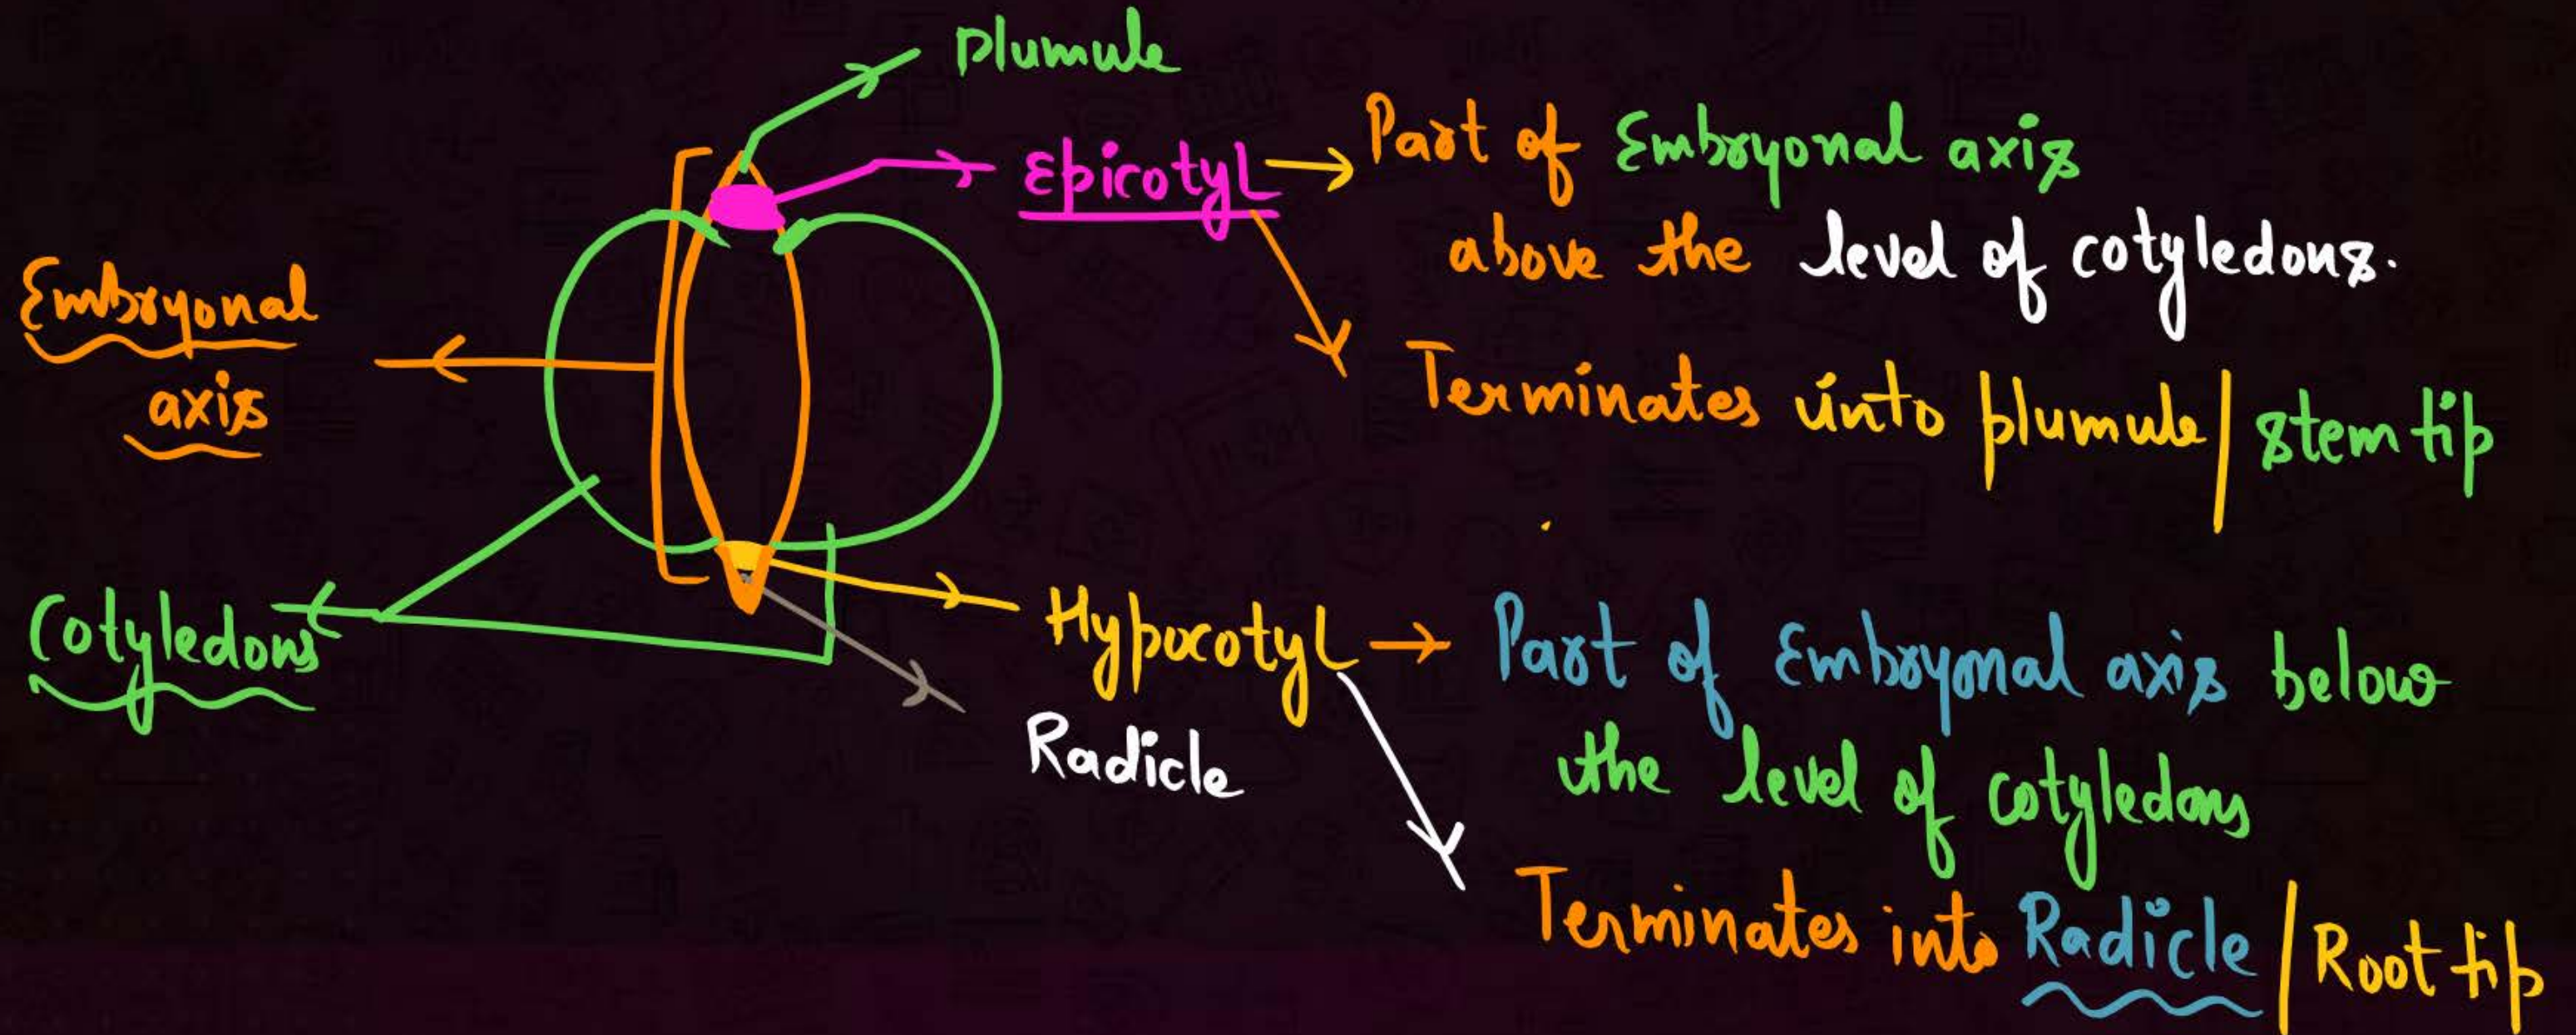 Plumule
Epicotyl
Part of Embryonal axis
above the level of cotyledons.
Terminates into plumule/stem tip
Embryonal
axis
Cotyledons
Hypocotyl
Part of Embryonal axis below
the level of cotyledons
Radicle
Terminates into Radicle/Root tip